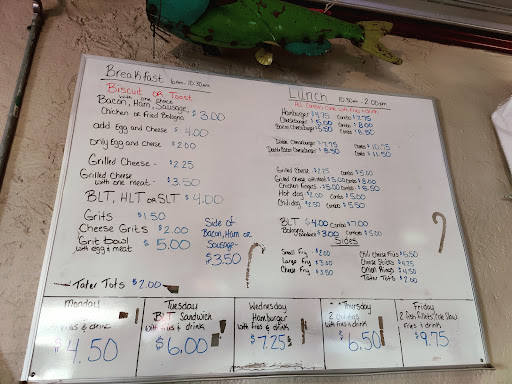 Breakfast 6am - 10:30am
Biscuit or Toast
with one choice
Bacon, Ham, Sausage,
Chicken or Fried Bologna $3.00
add Egg and Cheese $4.00
only Egg and Cheese $2.00
Grilled Cheese - $2.25
Grilled Cheese
with one meat - $3.50
BLT, HLT or SLT $4.00
Grits $1.50
Cheese Grits $2.00
Grit bowl $5.00
with egg & meat
Side of
Bacon, Ham or
Sausage -
$3.50
Tater Tots $2.00
Lunch 10:30am - 2:00pm
All Combos Come with Fries & drink
Hamburger $4.75 Combo $7.75
Cheeseburger $5.00 Combo $8.00
Bacon Cheeseburger $5.50 Combo $8.50
Double Cheeseburger $7.75 Combo $10.75
Double Bacon Cheeseburger $8.50 Combo $11.50
Grilled Cheese $2.25 Combo $5.00
Grilled Cheese with Meat $5.00 Combo $8.00
Chicken Fingers $5.00 Combo $8.50
Hot dog $2.00 Combo $5.00
Chili dog $2.50 Combo $5.50
BLT $4.00 Combo $7.00
Bologna Sandwich $3.00 Combo $5.00
Sides
Small Fry $2.00
Large Fry $3.00
Cheese Fry $3.50
Chili Cheese Fries $5.50
Cheese Sticks $4.75
Onion Rings $4.50
Tater Tots $2.00
Monday
fries & drink
$4.50
Tuesday
BLT Sandwich
with fries & drink
$6.00
Wednesday
Hamburger
with fries & drink
$7.25
Thursday
2
with fries & drink
$6.50
Friday
2 fish fillets, Cole Slaw
Fries & drink
$9.75